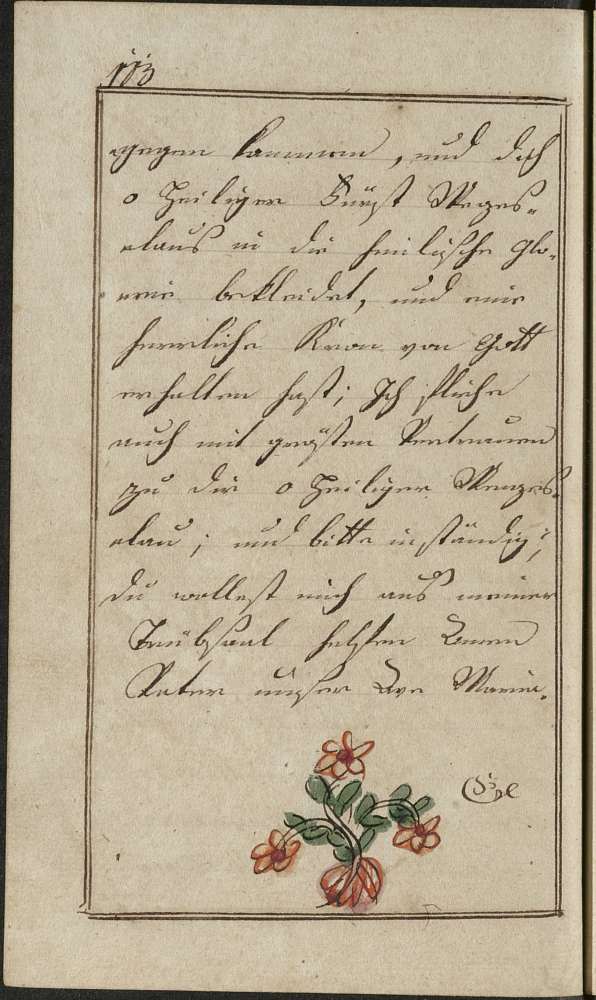 113
gegen kommen, und dich
o Heiliger Fürst Weges=
elaus in die himlische Glo=
rie bekleidet, und eine
herrliche Kron von Gott
erhalten hast; Ich fliche
auch mit grösten Vertrauen
zu dir o Heiliger Wenges=
elau; und bitte inständig,
du wollest mich aus meiner
Trübsaal helfen Amen
Vater unser Ave Maria.